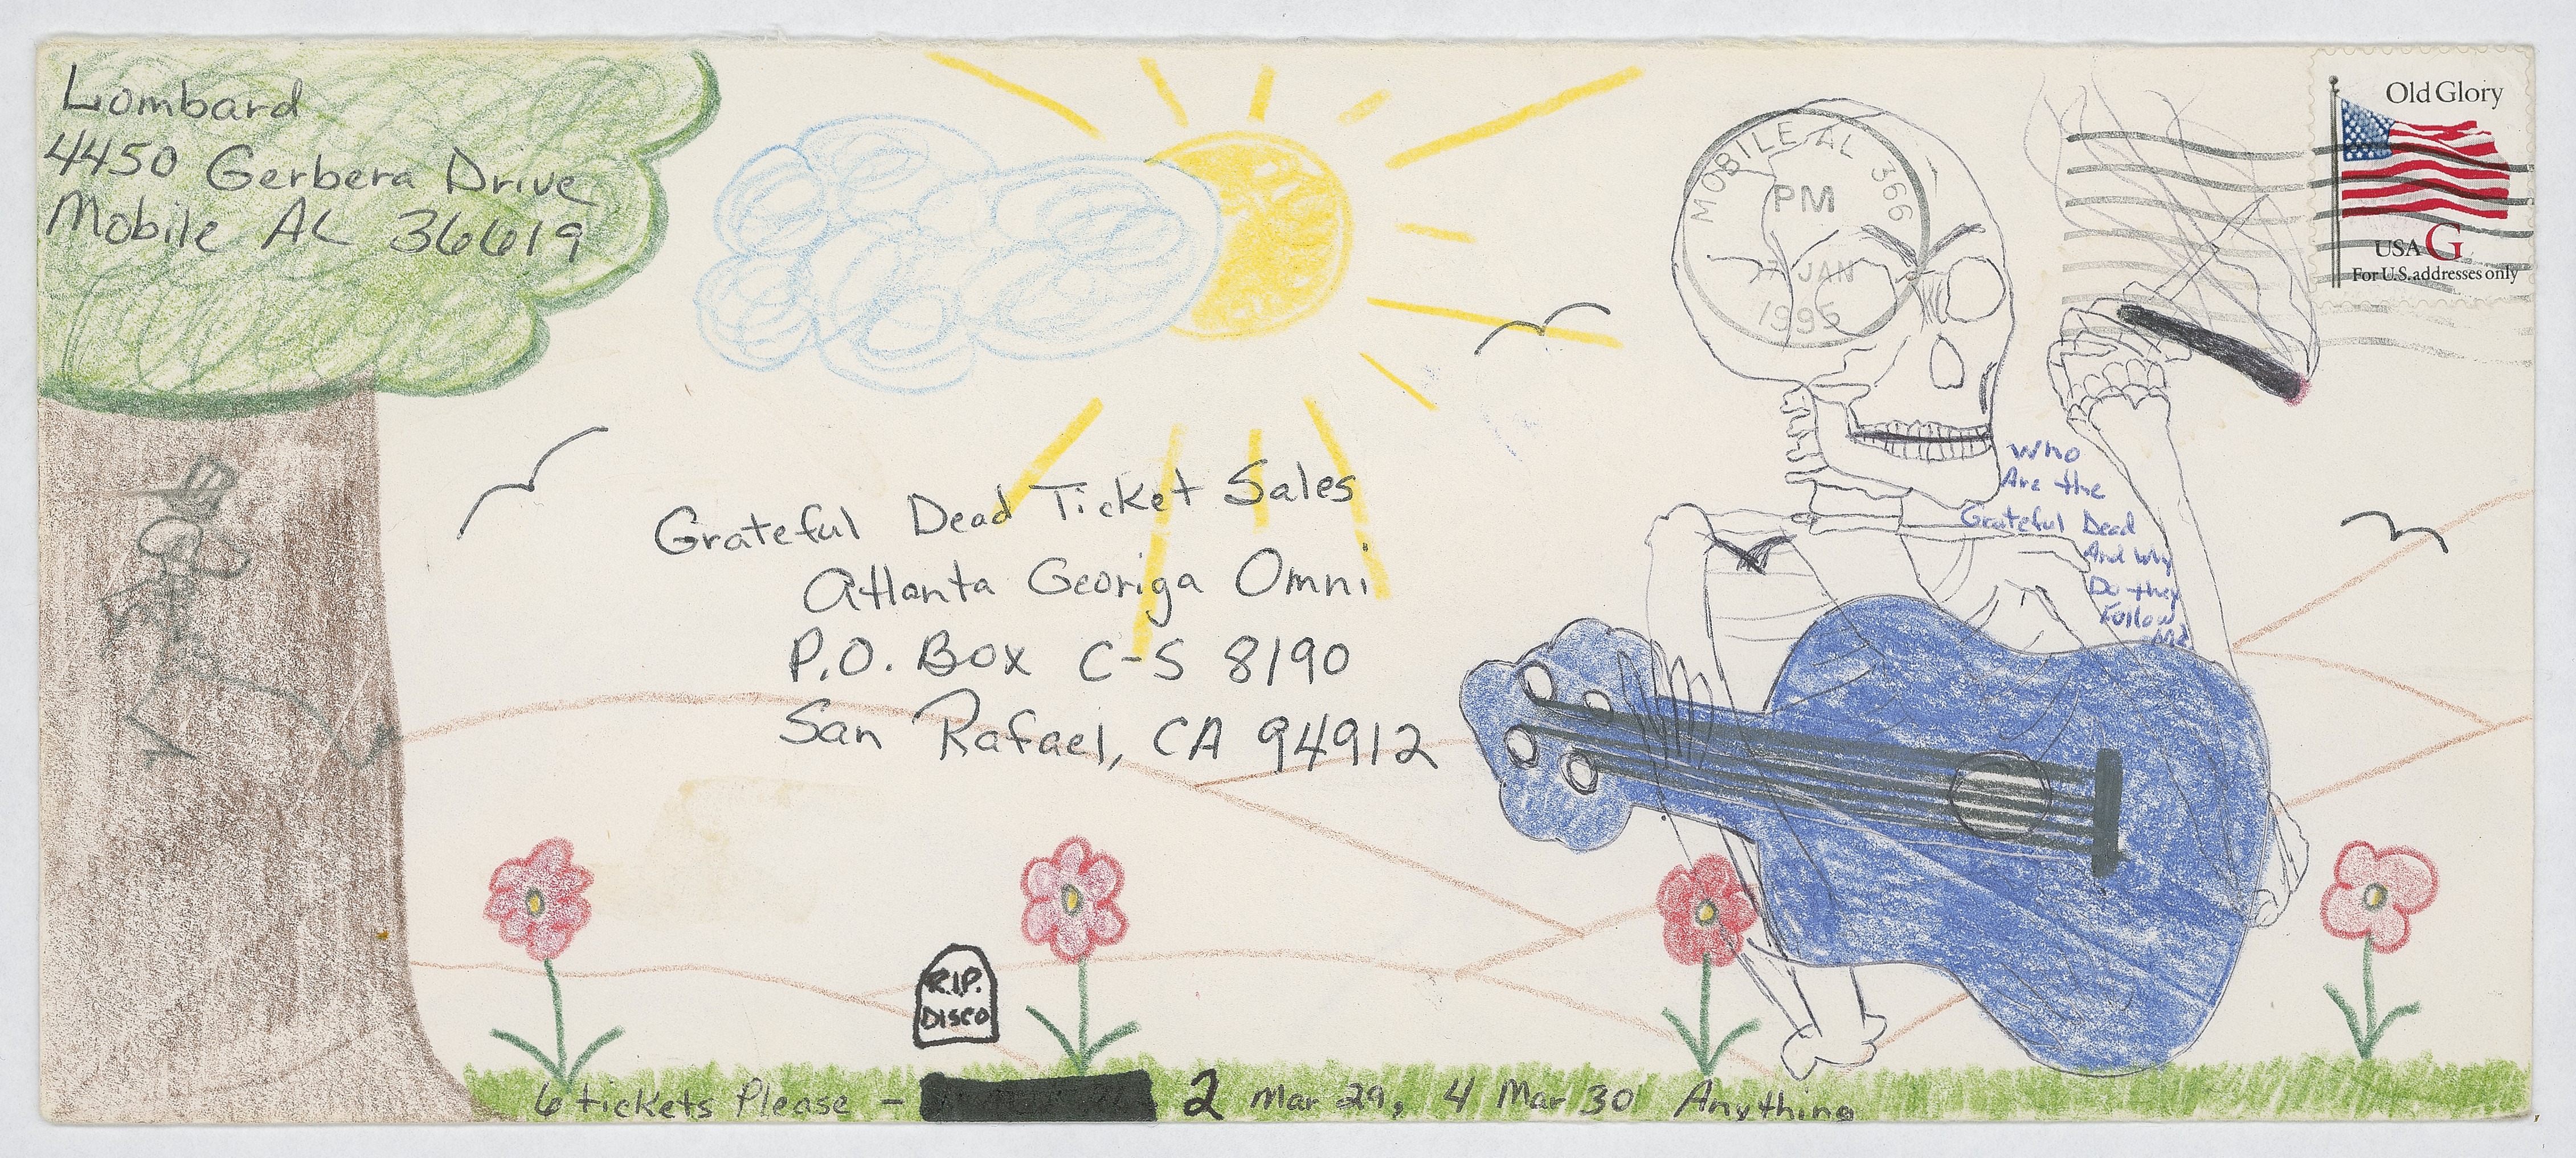 Lombard
4450 Gerbera Drive
Mobile AL 36619
Old Glory
USA G
For U.S. addresses only
MOBILE AL 366
PM
JAN
1995
Grateful Dead Ticket Sales
Atlanta Georiga Omni
P.O. Box C-S 8190
San Rafael, CA 94912
Who
Are the
Grateful Dead
And why
Do they
Follow
Me
R.I.P.
Disco
6 tickets Please - 2 Mar 29, 4 Mar 30 Anything